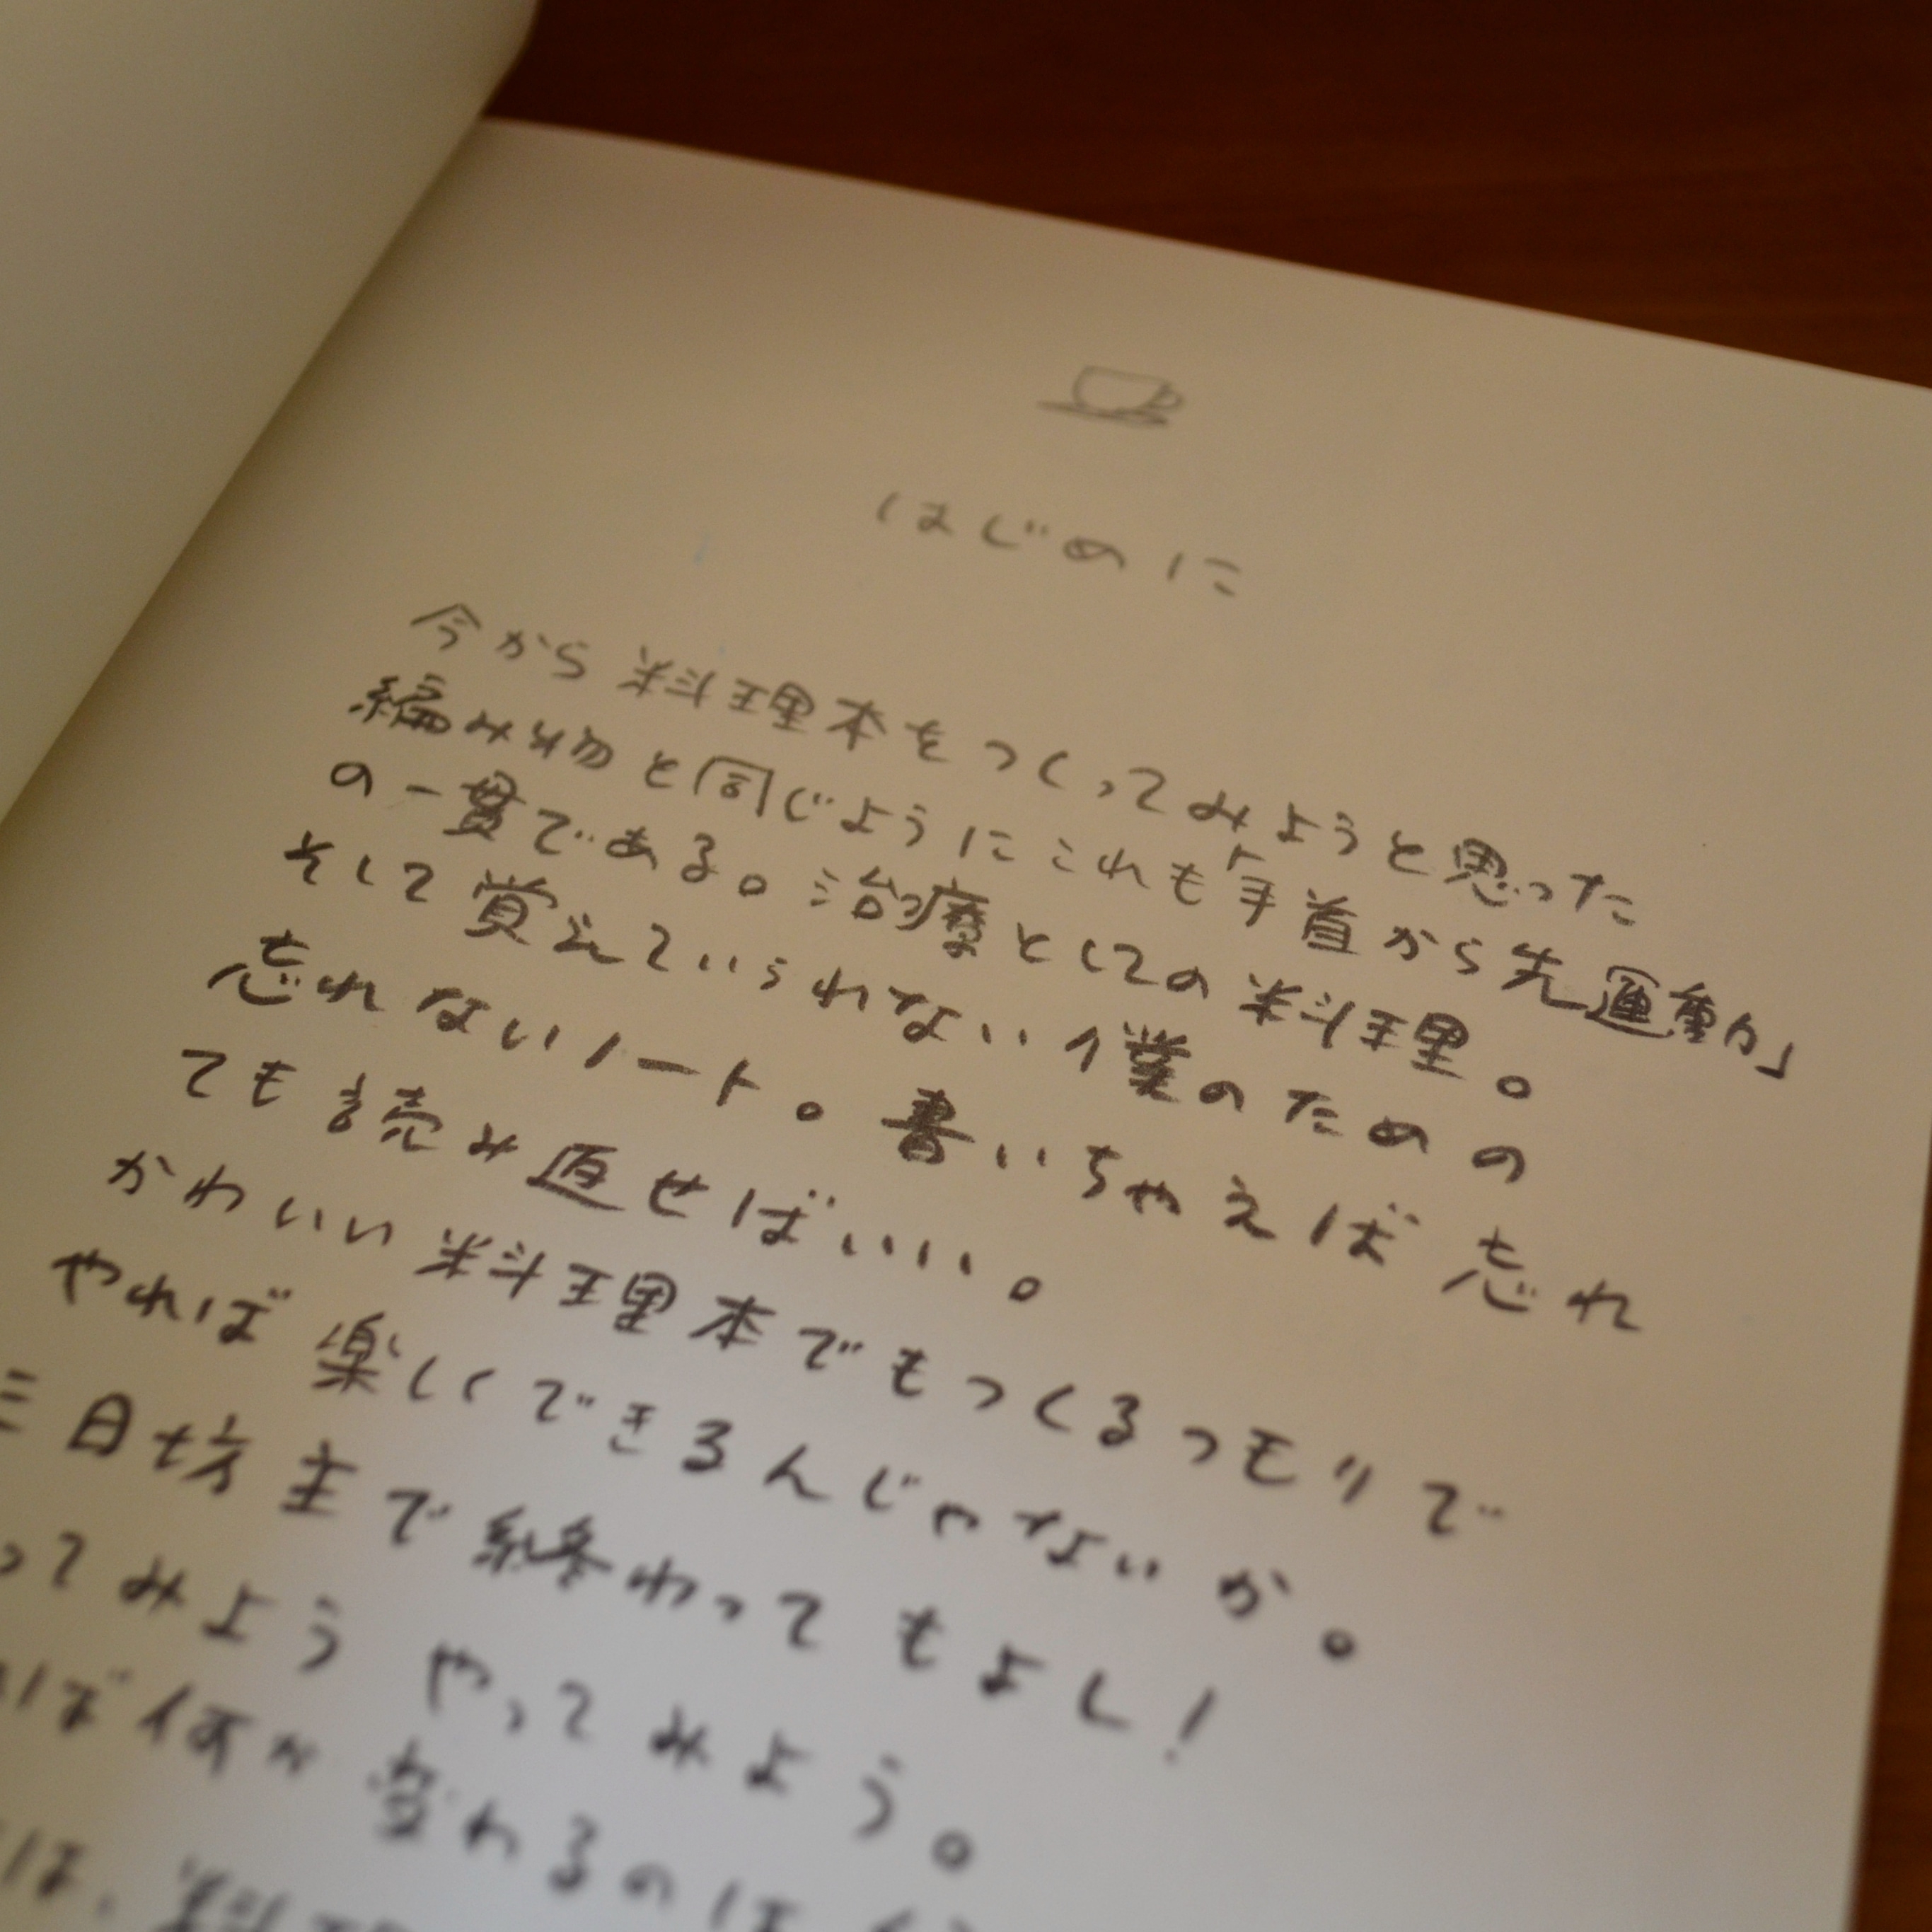 はじめに
今から料理本をつくってみようと思った
編み物と同じようにこれも「手首から先運動」
の一貫である。治療としての料理。
そして覚えていられない僕のための
忘れないノート。書いちゃえば忘れ
ても読み返せばいい。
かわいい料理本でもつくるつもりで
やれば楽しくできるんじゃないか。
三日坊主で終わってもよし!
ってみようやってみよう。
ば何か変わるのは
は、料理